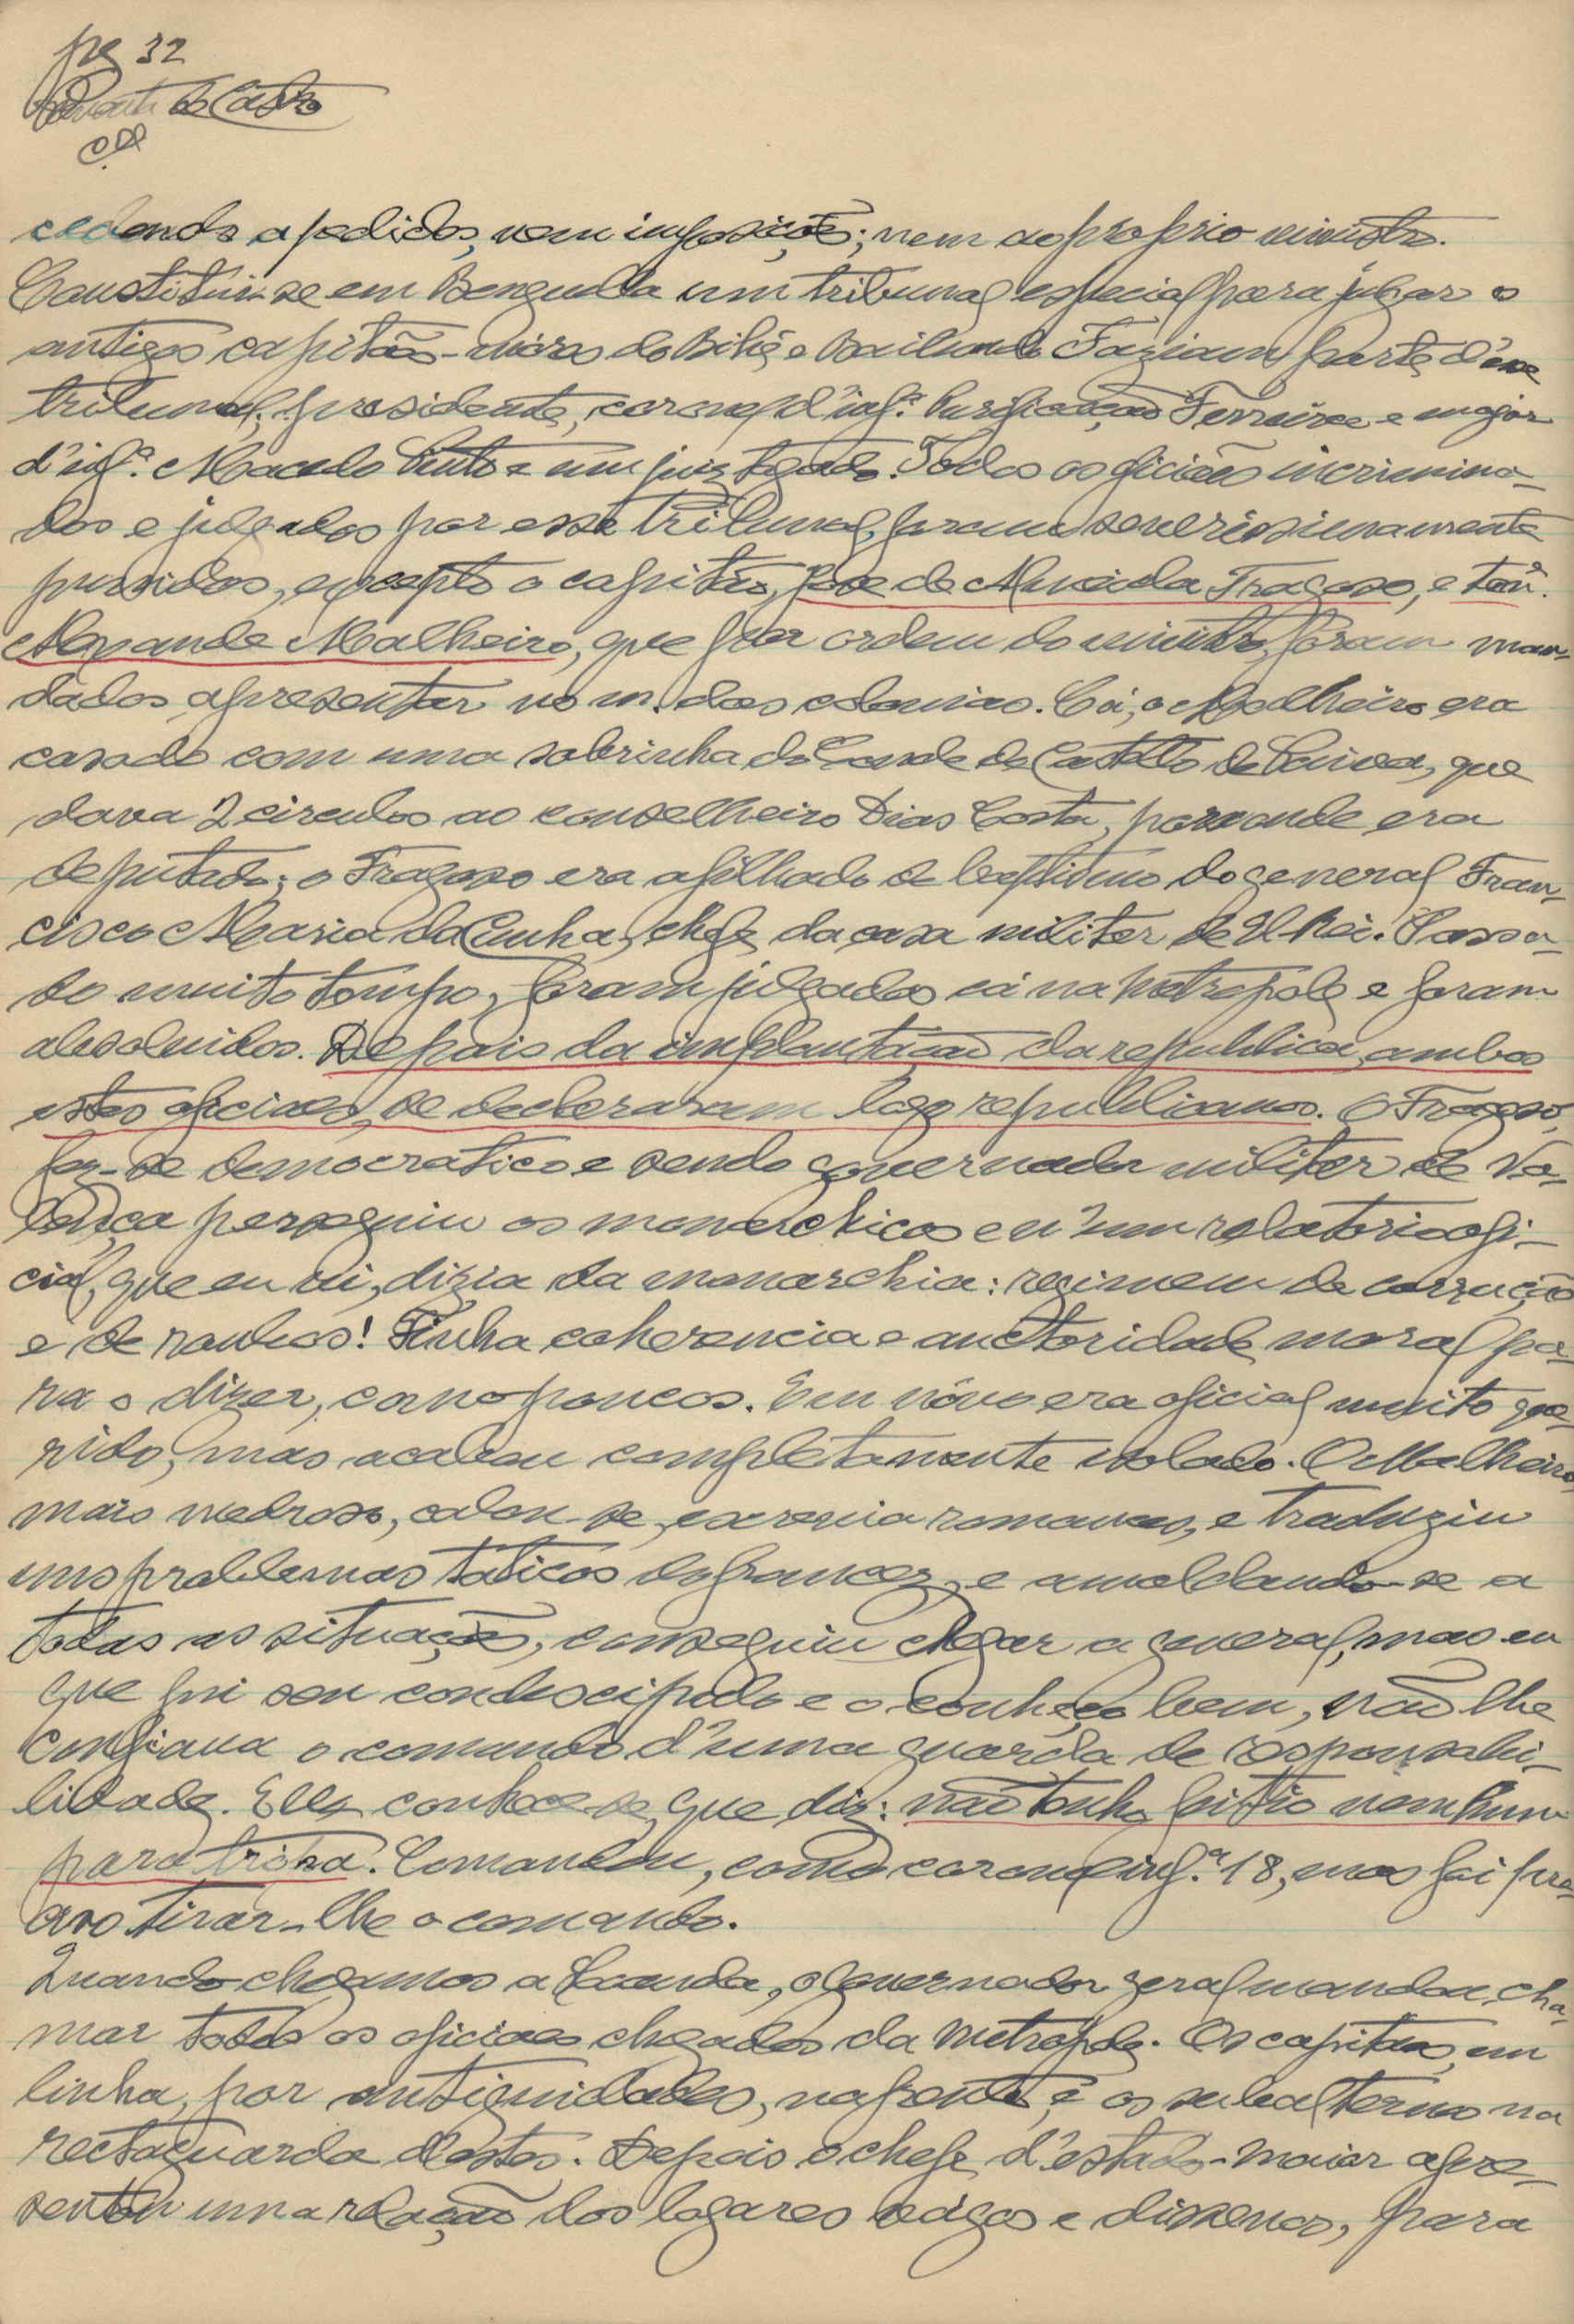 pg 32
de Castro
cedendo a pedidos, nem imposições; nem ao proprio ministro.
Constituiu-se em Benguella um tribunal especial para julgar os
antigos capitães-móres do Bihé e Bailundo. Faziam parte d'esse
tribunal; presidente, coronel d'infª. Purificação Ferreira e major
d'infª. Macedo Pinto e um juiz togado. Todos os oficiaes incrimina-
dos e julgados por esse tribunal, foram severissimamente
punidos, excepto o capitão, José de Almeida Fragoso, e tenᵗ.
Alexandre Malheiro, que por ordem do ministro, foram man-
dados apresentar no m. das colonias. Cá, o Malheiro era
casado com uma sobrinha do Conde de Castello de Paiva, que
dava 2 circulos ao conselheiro Dias Costa, por onde era
deputado; o Fragoso era afilhado de baptismo do general Fran-
cisco Maria da Cunha, chefe da casa militar de El-Rei. Passa-
do muito tempo, foram julgados cá na metropole e foram
absolvidos. Depois da implantação da republica, ambos
estes oficiaes, se declararam logo republicanos. O Fragoso,
fez-se democratico e sendo governador militar de Va-
lença perseguiu os monarchicos e n'um relatorio ofi-
cial, que eu vi, dizia da monarchia: regimem de corrução
e de roubos! Tinha coherencia e auctoridade moral pa-
ra o dizer, como poucos. Em nôvo era oficial muito que-
rido, mas acabou completamente isolado. O Malheiro,
mais medroso, calou-se, escrevia romances, e traduziu
uns problemas taticos do francez, e amoldando-se a
todas as situações, conseguiu chegar a general, mas eu
que fui seu condiscipulo e o conheço bem, não lhe
confiava o comando d'uma guarda de responsabi-
lidade. Elle conhece-se, que diz: não tenho feitio nenhum
para tropa. Comandou, como coronel infª. 18, mas foi pre-
ciso tirar-lhe o comando.
Quando chegámos a Loanda, o governador geral mandou cha-
mar todos os oficiaes chegados da metrópole. Os capitães, em
linha, por antiguidades, na frente, e os subalternos na
rectaguarda d'estes. Depois o chefe d'estado-maior apre-
sentou uma relação dos logares vágos e disse-nos, para